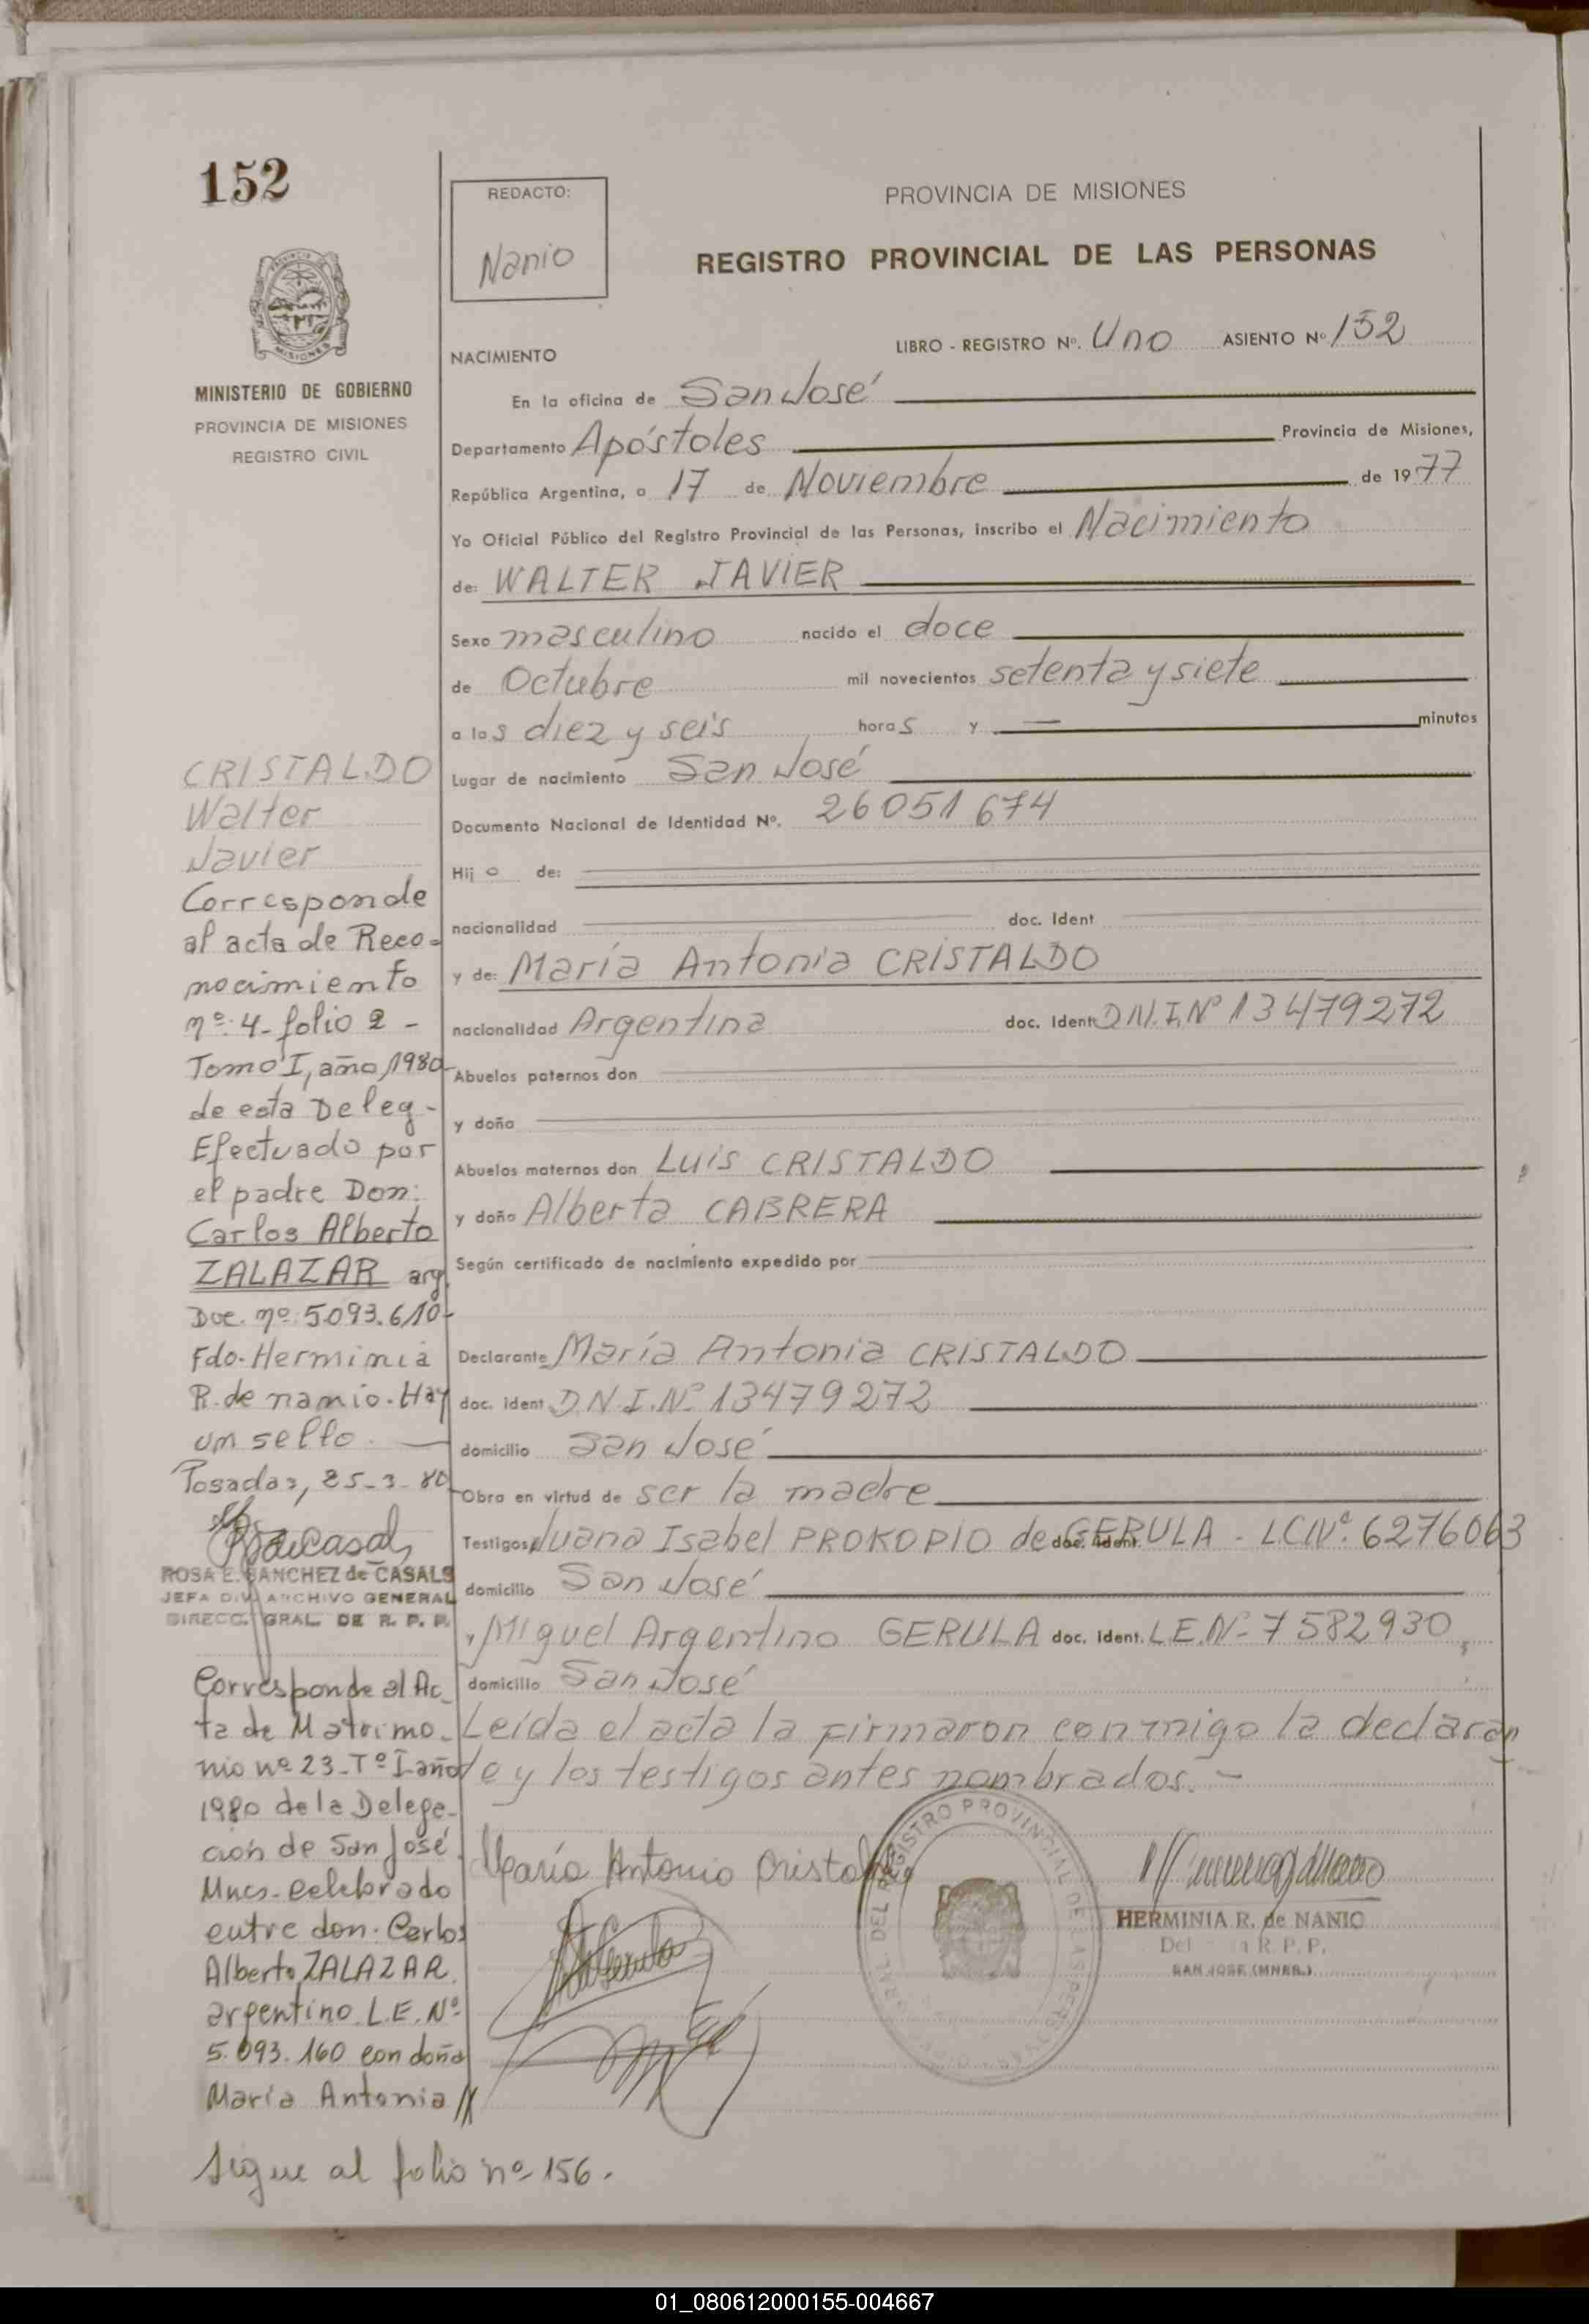 152
MINISTERIO DE GOBIERNO
PROVINCIA DE MISIONES
REGISTRO CIVIL
REDACTO:
Nanio
PROVINCIA DE MISIONES
REGISTRO PROVINCIAL DE LAS PERSONAS
NACIMIENTO
LIBRO - REGISTRO Nº. Uno ASIENTO Nº 152
En la oficina de San José
Departamento Apóstoles Provincia de Misiones,
República Argentina, a 17 de Noviembre de 1977
Yo Oficial Público del Registro Provincial de las Personas, inscribo el Nacimiento
de: WALTER JAVIER
Sexo masculino nacido el doce
de Octubre mil novecientos setenta y siete
a las diez y seis horas y — minutos
Lugar de nacimiento San José
Documento Nacional de Identidad Nº. 26051674
Hijo de:
nacionalidad doc. Ident
y de: María Antonia CRISTALDO
nacionalidad Argentina doc. Ident D.N.I.Nº 13479272
Abuelos paternos don
y doña
Abuelos maternos don Luis CRISTALDO
y doña Alberta CABRERA
Según certificado de nacimiento expedido por
Declarante María Antonia CRISTALDO
doc. ident D.N.I.Nº 13479272
domicilio San José
Obra en virtud de ser la madre
Testigos Juana Isabel PROKOPIO de GERULA - LC Nº. 6276063
domicilio San José
y Miguel Argentino GERULA doc. Ident. L.E.Nº 7582930,
domicilio San José
Leída el acta la firmaron conmigo la declaran
te y los testigos antes nombrados. -
María Antonia Cristaldo
REGISTRO PROVINCIAL DE LAS PERSONAS
HERMINIA R. de NANIO
R. P. P.
SAN JOSE (MNES.)
CRISTALDO
Walter
Javier
Corresponde
al acta de Reco-
nocimiento
nº: 4- folio 2 -
Tomo I, año 1980-
de esta Deleg-
Efectuado por
el padre Don:
Carlos Alberto
ZALAZAR arg.
Doc. nº: 5.093.610-
Fdo- Herminia
R. de nanio. Hay
un sello. —
Posadas, 25-3-80
ROSA E. SANCHEZ de CASALS
JEFA DIV. ARCHIVO GENERAL
DIRECC. GRAL. DE R. P. P.
Corresponde al Ac-
ta de Matrimo-
nio nº 23- Tº I- año
1980 de la Delega-
ción de San José
Mnes- celebrado
entre don. Carlos
Alberto ZALAZAR
argentino L.E. Nº
5.093.160 con doña
María Antonia //
Sigue al folio nº 156.
01_080612000155-004667